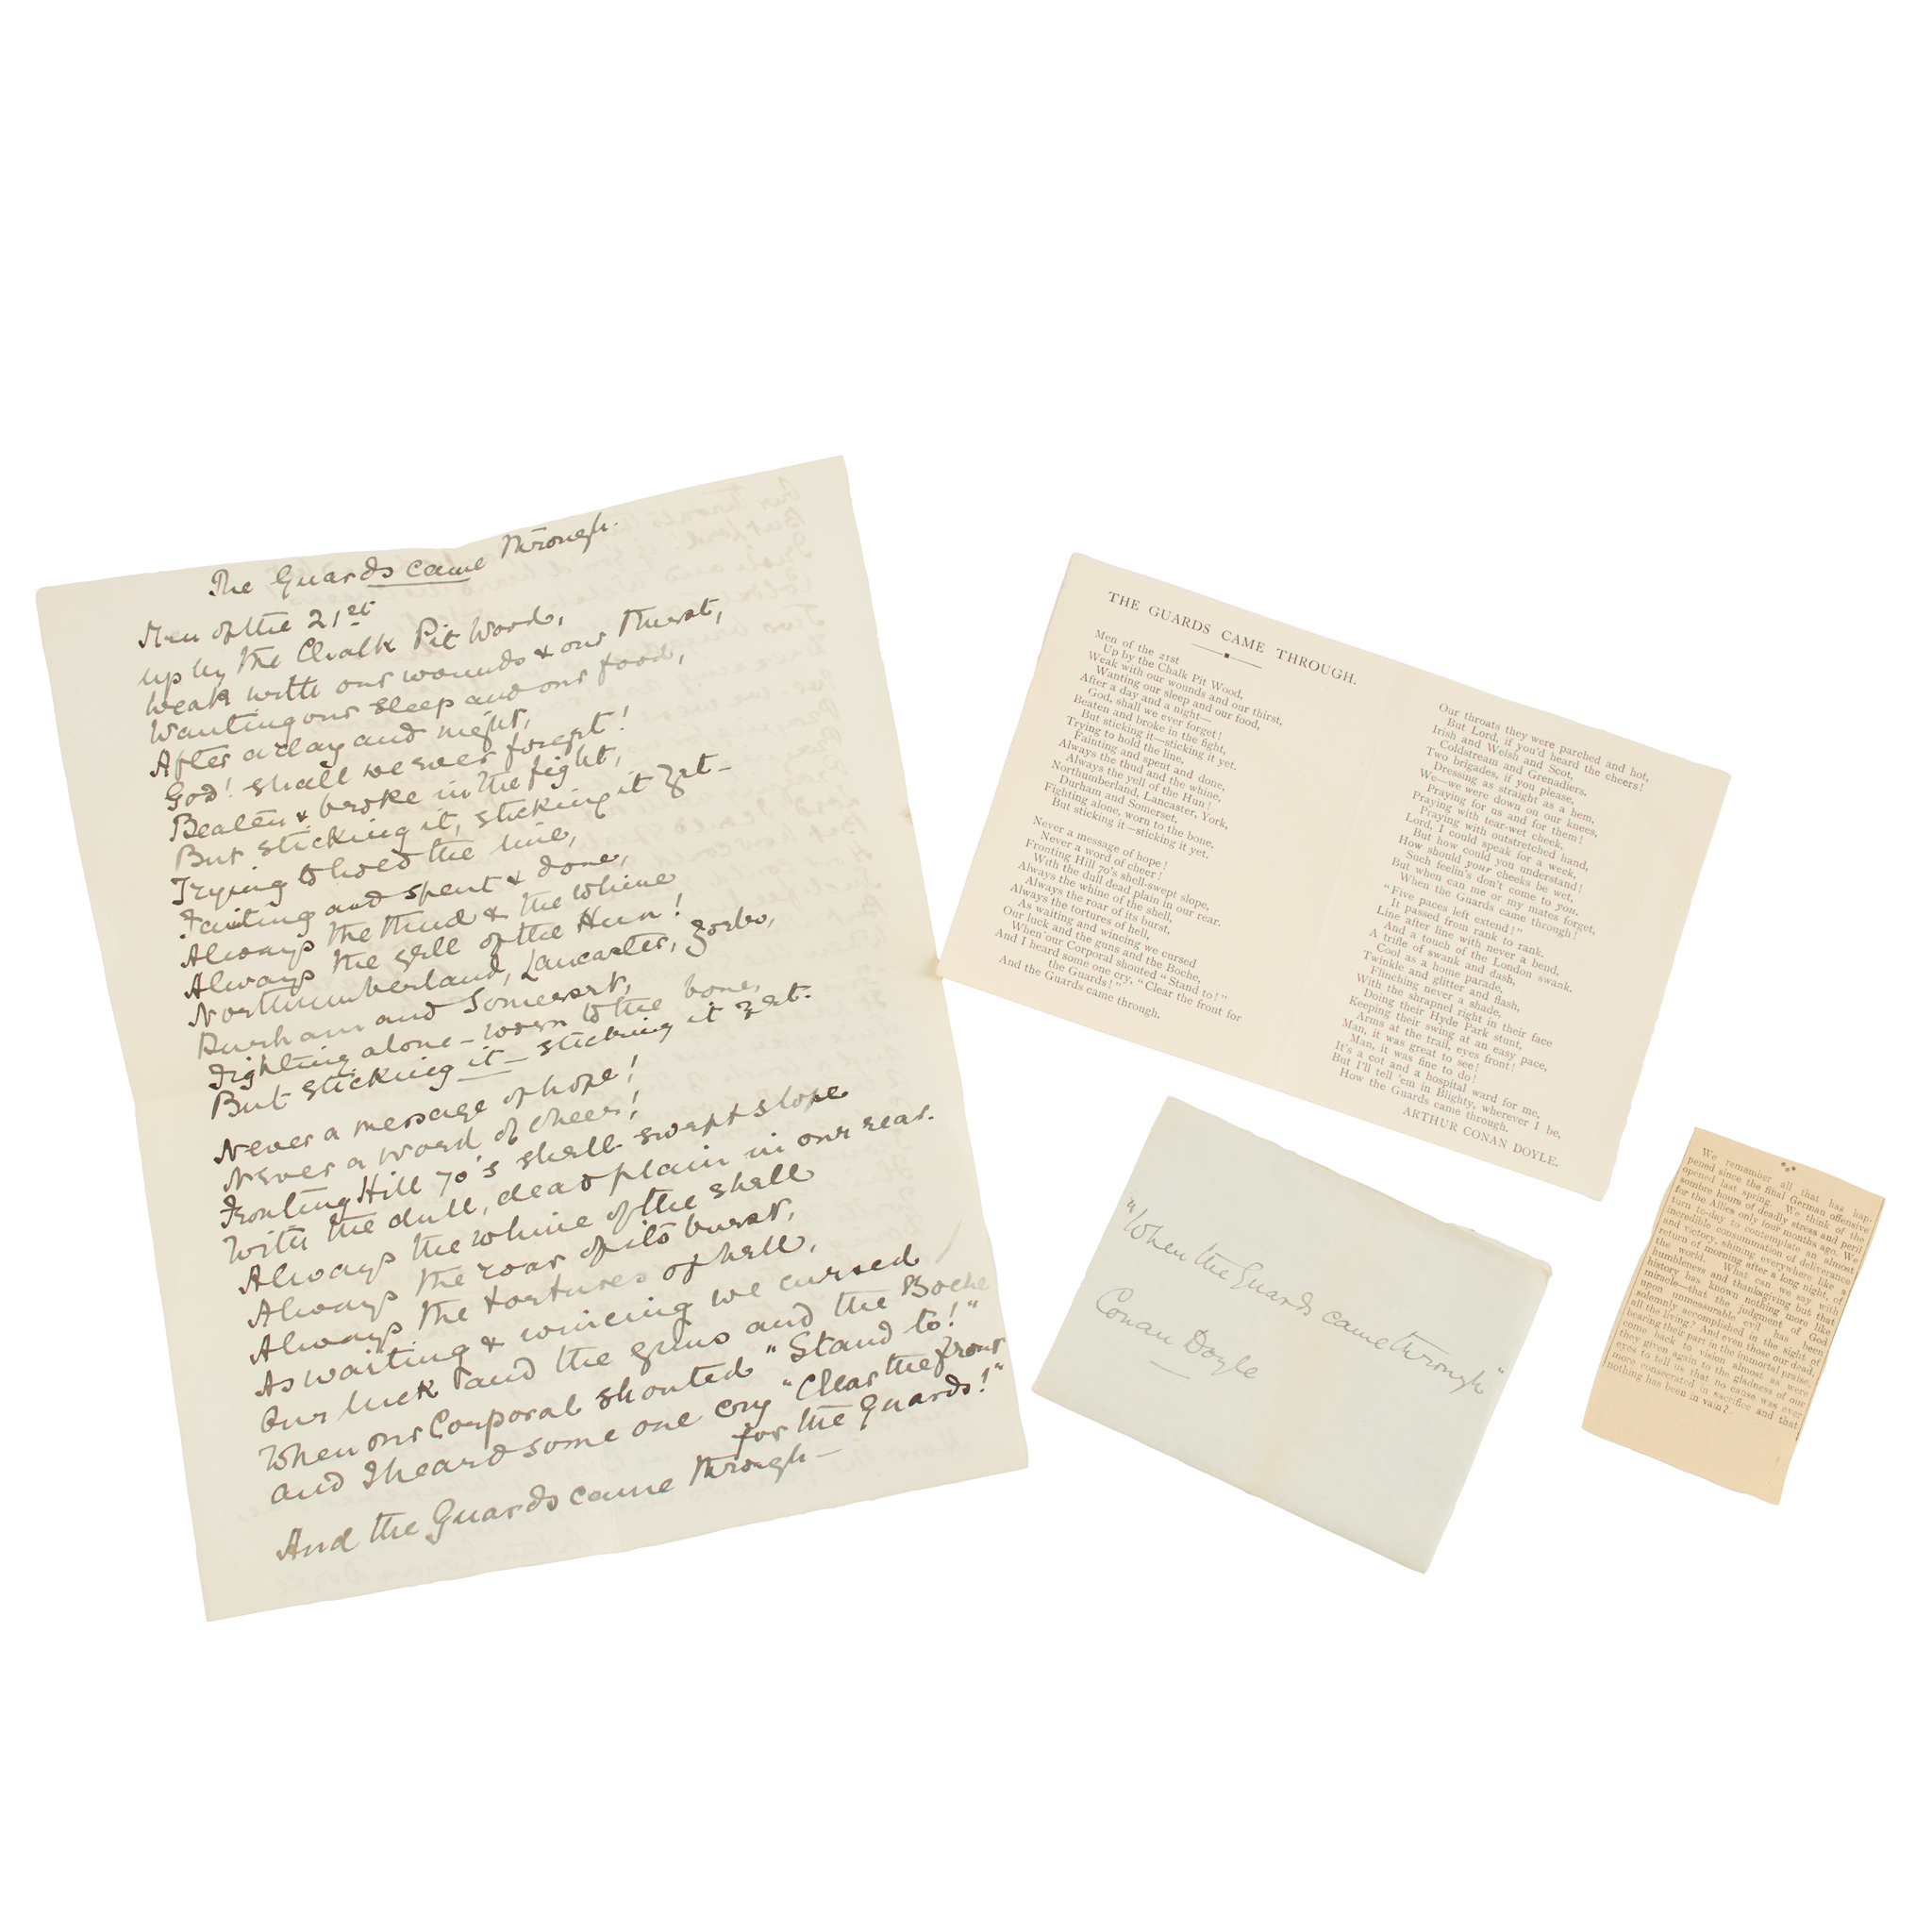 The Guards came through.
Men of the 21st
up by the Chalk Pit Wood,
Weak with our wounds & our thirst,
Wanting our sleep and our food,
After a day and night,
God! shall we ever forget!
Beaten & broke in the fight,
But sticking it, sticking it yet –
Trying to hold the line,
Fainting and spent & done,
Always the thud & the whine
Always the yell of the Hun!
Northumberland, Lancaster, Yorks,
Durham and Somerset,
Fighting alone – worn to the bone,
But sticking it – sticking it yet.
Never a message of hope!
Never a word of cheer!
Fronting Hill 70's shell-swept slope
With the dull, dead plain in our rear.
Always the whine of the shell
Always the roar of its burst,
Always the tortures of hell,
As waiting & wincing we cursed
Our luck and the guns and the Boche
When our Corporal shouted "Stand to!"
and I heard some one cry "Clear the front
for the Guards!"
And the Guards came through –
THE GUARDS CAME THROUGH.
Men of the 21st
Up by the Chalk Pit Wood,
Weak with our wounds and our thirst,
Wanting our sleep and our food,
After a day and a night—
God, shall we ever forget!
Beaten and broke in the fight,
But sticking it—sticking it yet.
Trying to hold the line,
Fainting and spent and done,
Always the thud and the whine,
Always the yell of the Hun!
Northumberland, Lancaster, York,
Durham and Somerset,
Fighting alone, worn to the bone,
But sticking it—sticking it yet.
Never a message of hope!
Never a word of cheer!
Fronting Hill 70's shell-swept slope,
With the dull dead plain in our rear.
Always the whine of the shell,
Always the roar of its burst,
Always the tortures of hell,
As waiting and wincing we cursed
Our luck and the guns and the Boche,
When our Corporal shouted "Stand to!"
And I heard some one cry, "Clear the front for
the Guards!"
And the Guards came through.
Our throats they were parched and hot,
But Lord, if you'd heard the cheers!
Irish and Welsh and Scot,
Coldstream and Grenadiers.
Two brigades, if you please,
Dressing as straight as a hem,
We—we were down on our knees,
Praying for us and for them!
Praying with tear-wet cheek,
Praying with outstretched hand,
Lord, I could speak for a week,
But how could you understand!
How should your cheeks be wet,
Such feelin's don't come to you.
But when can me or my mates forget,
When the Guards came through!
"Five paces left extend!"
It passed from rank to rank.
Line after line with never a bend,
And a touch of the London swank.
A trifle of swank and dash,
Cool as a home parade,
Twinkle and glitter and flash,
Flinching never a shade,
With the shrapnel right in their face
Doing their Hyde Park stunt,
Keeping their swing at an easy pace,
Arms at the trail, eyes front!
Man, it was great to see!
Man, it was fine to do!
It's a cot and a hospital ward for me,
But I'll tell 'em in Blighty, wherever I be,
How the Guards came through.
ARTHUR CONAN DOYLE.
"When the Guards came through"
Conan Doyle
We remember all that has hap-
pened since the final German offensive
opened last spring. We think of the
sombre hours of deadly stress and peril
for the Allies only four months ago. We
turn to-day to contemplate an almost
incredible consummation of deliverance
and victory, shining everywhere like a
return of morning after a long night, of
the world. What can we say with
humbleness and thanksgiving but that
history has known nothing more like
miracle—that the judgment of God
upon unmeasurable evil has been
solemnly accomplished in the sight of
all the living? And even those our dead,
bearing their part in the immortal praise,
come back to vision almost as were
they given again to the gladness of our
eyes to tell us that no cause was ever
more consecrated in sacrifice and that
nothing has been in vain?